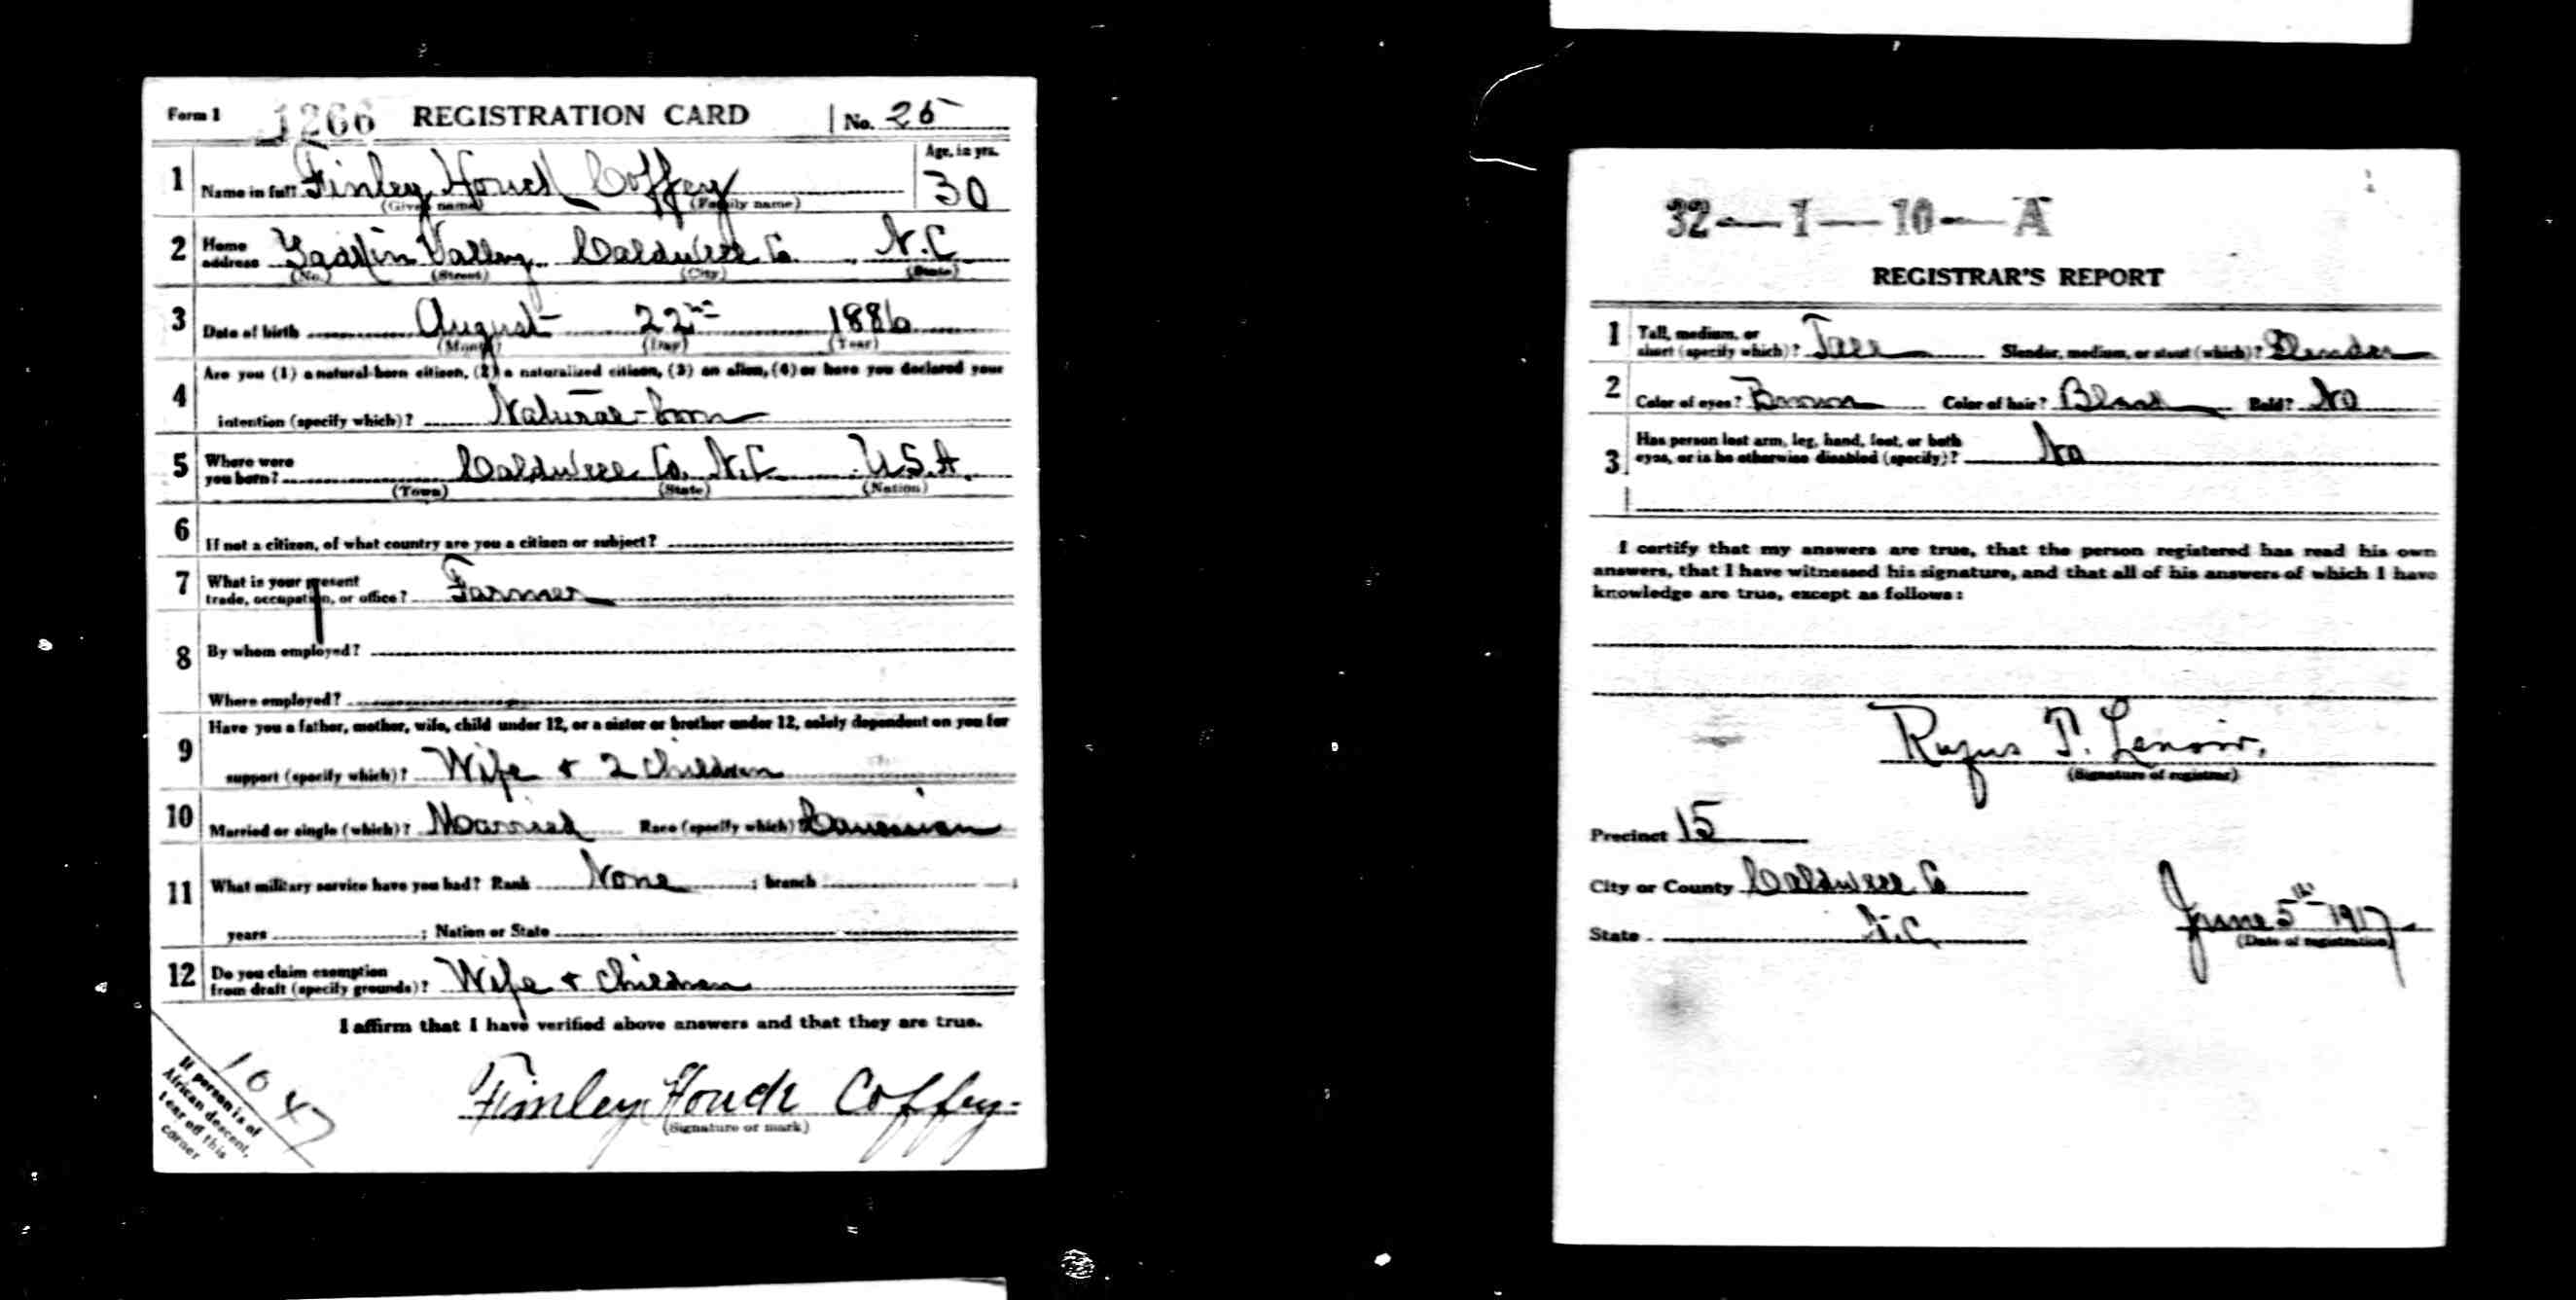 Form 1 1266 REGISTRATION CARD No. 25
1 Name in full Finley Houck Coffey Age, in yrs. 30
(Given name) (Family name)
2 Home address Yadkin Valley Caldwell Co. N.C.
(No.) (Street) (City) (State)
3 Date of birth August 22nd 1886
(Month) (Day) (Year)
4 Are you (1) a natural-born citizen, (2) a naturalized citizen, (3) an alien, (4) or have you declared your
intention (specify which)? Natural-born
5 Where were you born? Caldwell Co. N.C. U.S.A.
(Town) (State) (Nation)
6 If not a citizen, of what country are you a citizen or subject?
7 What is your present trade, occupation, or office? Farmer
8 By whom employed?
Where employed?
9 Have you a father, mother, wife, child under 12, or a sister or brother under 12, solely dependent on you for
support (specify which)? Wife + 2 children
10 Married or single (which)? Married Race (specify which)? Caucasian
11 What military service have you had? Rank None ; branch ;
years ; Nation or State
12 Do you claim exemption from draft (specify grounds)? Wife + children
I affirm that I have verified above answers and that they are true.
Finley Houck Coffey
(Signature or mark)
1047
If person is of
African descent,
tear off this
corner
32—1—10—A
REGISTRAR'S REPORT
1 Tall, medium, or short (specify which)? Tall Slender, medium, or stout (which)? Slender
2 Color of eyes? Brown Color of hair? Black Bald? No
3 Has person lost arm, leg, hand, foot, or both
eyes, or is he otherwise disabled (specify)? No
I certify that my answers are true, that the person registered has read his own
answers, that I have witnessed his signature, and that all of his answers of which I have
knowledge are true, except as follows:
Rufus T. Lenoir.
(Signature of registrar)
Precinct 15
City or County Caldwell Co
State N.C. June 5th 1917
(Date of registration)